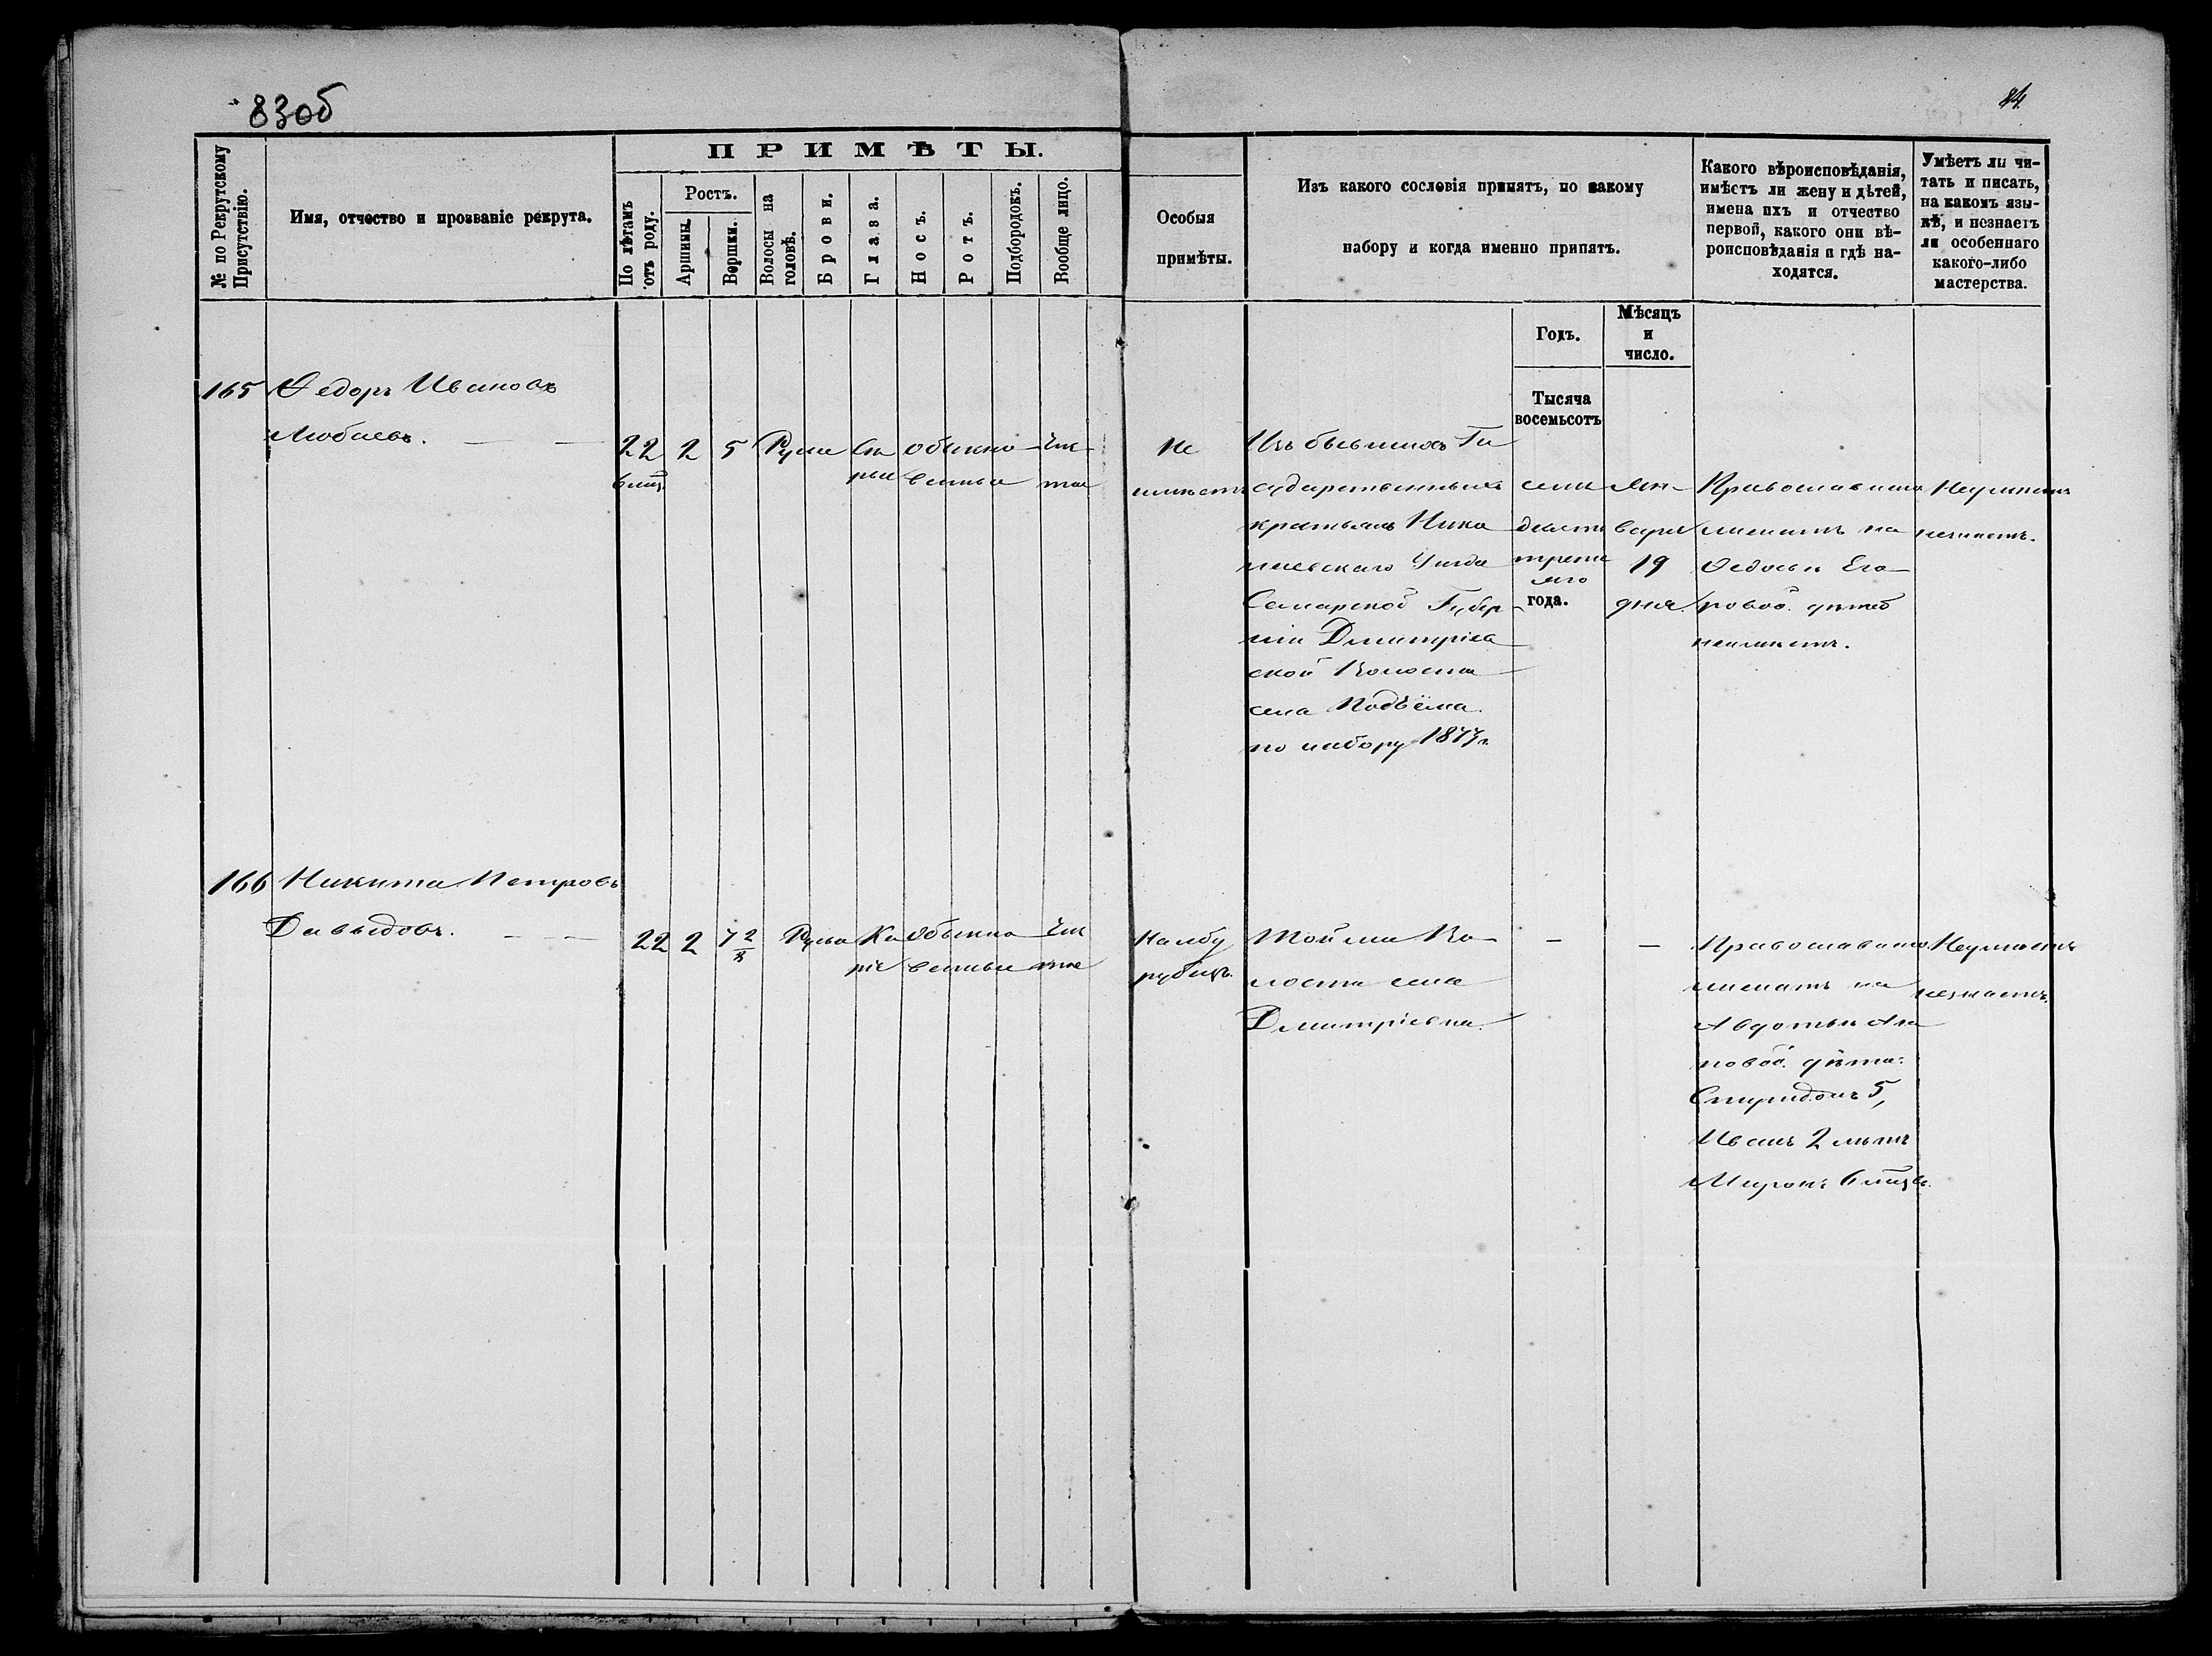 83об
84.
ПРИМѢТЫ.
№ по Рекрутскому
Присутствію.
Имя, отчество и прозваніе рекрута.
По лѣтамъ
отъ роду.
Ростъ.
Аршины.
Вершки.
Волосы на
головѣ.
Брови.
Глаза.
Носъ.
Ротъ.
Подбородокъ.
Вообще лицо.
Особыя
примѣты.
Изъ какого сословія принятъ, по какому
набору и когда именно принятъ.
Какого вѣроисповѣданія,
имѣетъ ли жену и дѣтей,
имена ихъ и отчество
первой, какого они вѣ-
роисповѣданія и гдѣ на-
ходятся.
Умѣетъ ли чи-
тать и писать,
на какомъ язы-
кѣ, и незнаетъ
ли особеннаго
какого-либо
мастерства.
Годъ.
Мѣсяцъ
и
число.
Тысяча
восемьсотъ
165
Ѳедоръ Ивановъ
Любаевъ.
22
6 мѣц.
2
5
Русые
Сѣ
рые
обыкно-
венные
Чис-
тое
Не
имѣетъ
Изъ бывшихъ Го
сударственныхъ
крестьянъ Нико
лаевскаго Уѣзда
Самарской Губер-
ніи Дмитріев
ской Волости
села Подъёма.
по набору 1873 г.
семи
десять
треть
яго
года.
Ян-
варя
19
дня.
Православнаго
женатъ на
Ѳедосьи Его-
ровой. дѣтей
неимѣетъ.
Неумѣетъ
незнаетъ.
166
Никита Петровъ
Давыдовъ.
22
2
7 2/8
Русые
Ка
ріе
обыкно-
венные
Чис
тое
На лбу
рубецъ.
Тойже Во-
лости села
Дмитріевка.
Православнаго
женатъ на
Авдотьи
дѣти:
Спиридонъ 5,
Иванъ 2 лѣтъ
Миронъ 6 мѣц.
Неумѣетъ
незнаетъ.